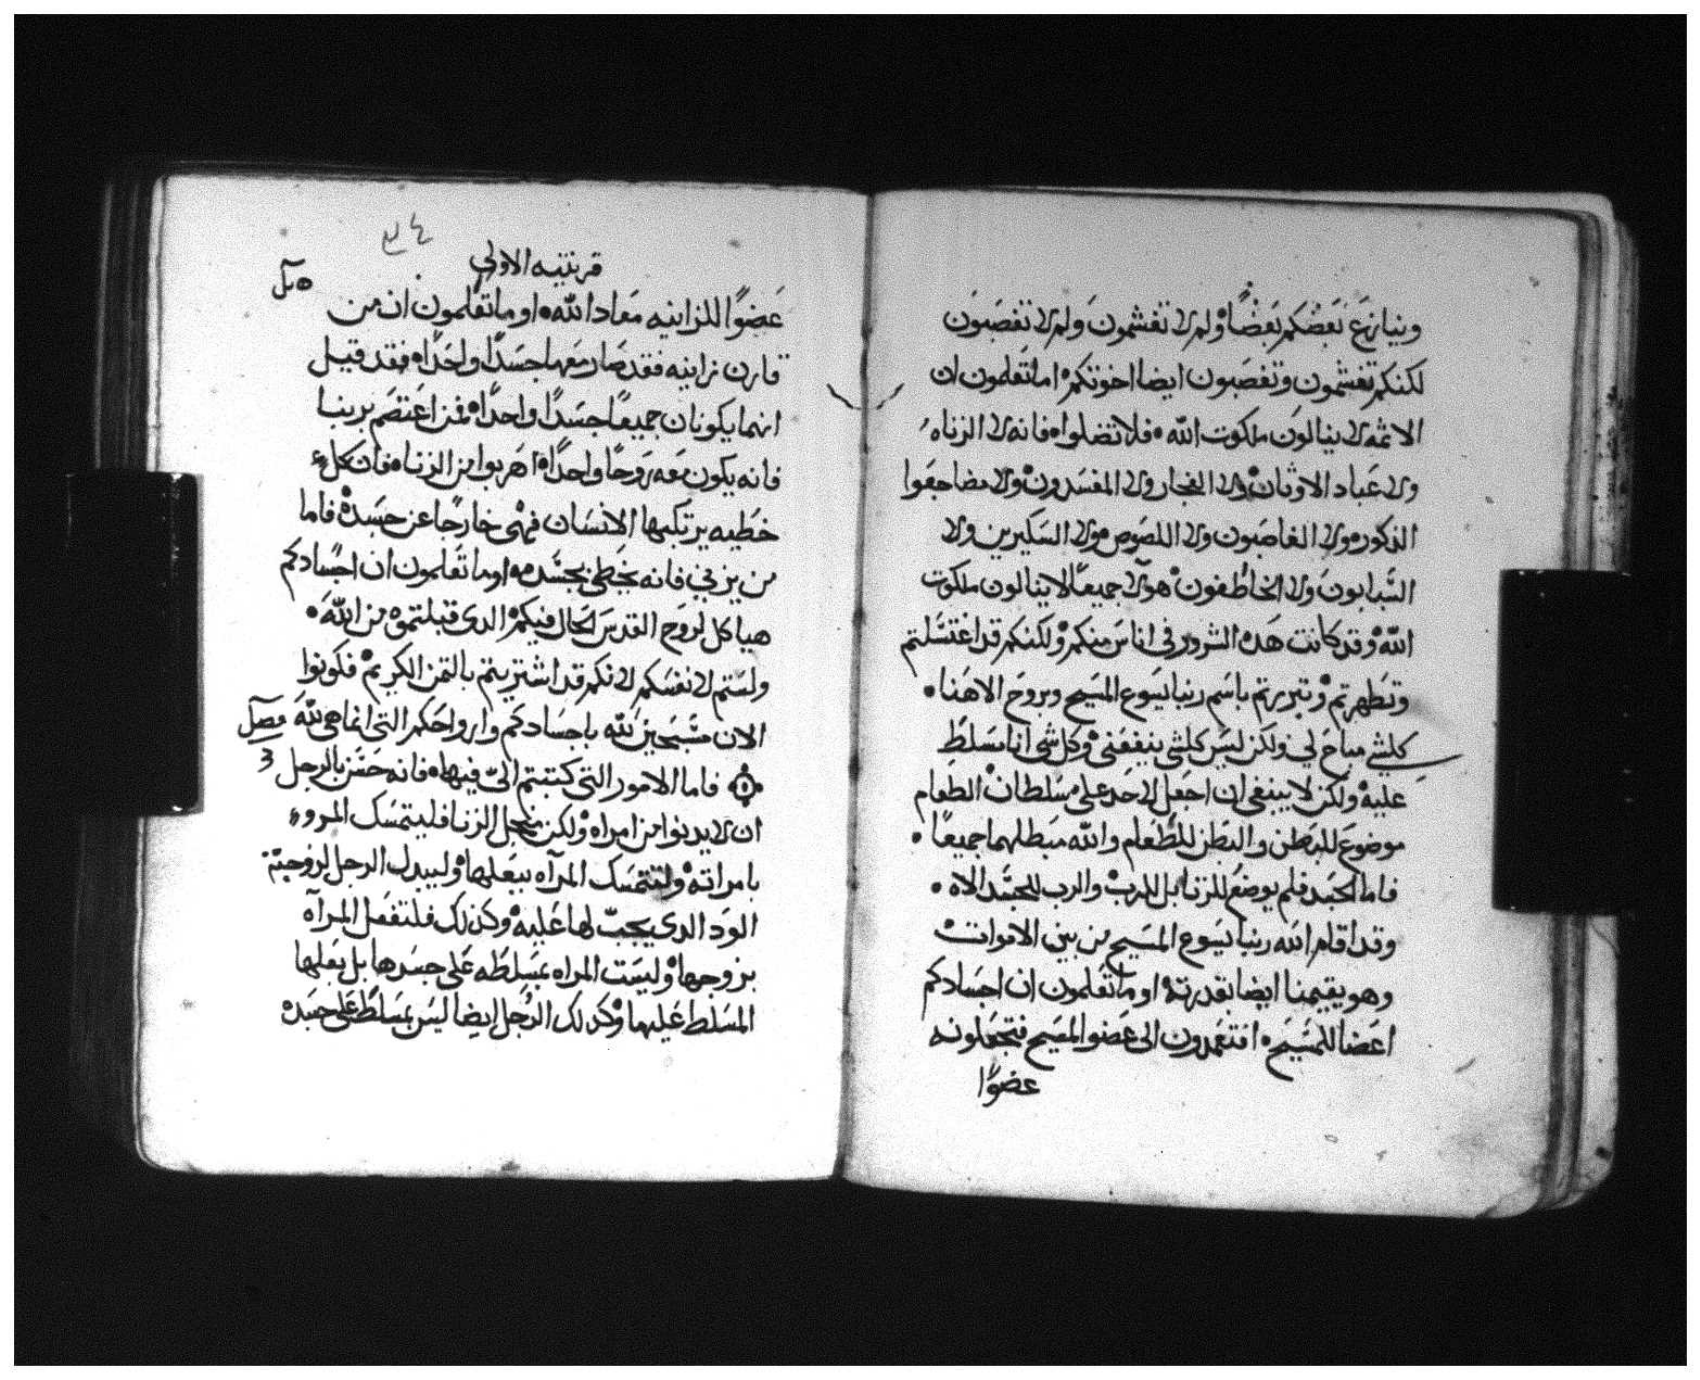 وينازع بعضكم بعضًا ولم لا تغشمون ولم لا تغصبون
لكنكم تغشمون وتغصبون ايضا اخوتكم اما تعلمون ان
الاثمه لا ينالون ملكوت الله فلا تضلوا فانه لا الزناه
ولا عباد الاوثان ولا الفجار ولا المفسدون ولا مضاجعوا
الذكور ولا الغاصبون ولا اللصوص ولا السكيرين ولا
السبابون ولا الخاطفون هولا جميعًا لا ينالون ملكوت
الله وقد كانت هده الشرور في اناس منكم ولكنكم قد اغتسلتم
وتطهرتم وتبررتم باسم ربنا يسوع المسيح وبروح الاهنا
كلشي مباح لي ولكن ليس كلشي ينفعني وكل شي انا مسلط
عليه ولكن لا ينبغي ان اجعل لاحد علي سلطان الطعام
موضوع للبطن والبطن للطعام والله مبطلهما جميعًا
فاما الجسد فلم يوضع للزنا بل للرب والرب للجسد الاه
وقد اقام الله ربنا يسوع المسيح من بين الاموات
وهو يقيمنا ايضا بقدرته او ما تعلمون ان اجسادكم
اعضا للمسيح افتعمدون الى عضو المسيح فتجعلونه
عضوًا
٣٤
قرنتيه الاولي
عضوًا للزانيه معاد الله او ما تعلمون ان من
قارن زانيه فقد صار معها جسدًا واحدًا فقد قيل
انهما يكونان جميعًا جسدًا واحدًا فمن اعتصم بربنا
فانه يكون معه روحًا واحدًا اهربوا من الزناه فان كل
خطيه يرتكبها الانسان فهى خارجًا عن جسده فاما
من يزني فانه يخطي بجسده او ما تعلمون ان اجسادكم
هياكل لروح القدس الحال فيكم الدى قبلتموه من الله
ولستم لانفسكم لانكم قد اشتريتم بالتمن الكريم فكونوا
الان مسبحين لله باجسادكم وارواحكم التى انما هى لله
فاما الامور التى كتبتم الىّ فيها فانه حسن بالرجل
ان لا يدنوا من امراه ولكن من اجل الزنا فليتمسك المرو
بامراته ولتتمسك المرآه ببعلها وليبدل الرجل لزوجته
الود الدى يجب لها عليه وكذلك فلتفعل المرآه
بزوجها وليست المراه بمسلطه على جسدها بل بعلها
المسلط عليها وكدلك الرجل ايضا ليس بمسلط على جسده